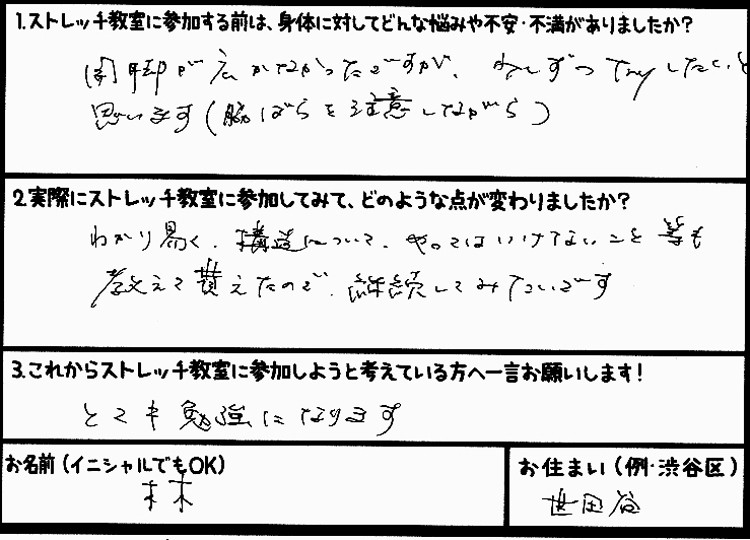 1.ストレッチ教室に参加する前は、身体に対してどんな悩みや不安・不満がありましたか？
開脚が広がなかったですが、少しずつtryしたいと
思います(脇ばらを注意しながら)
2.実際にストレッチ教室に参加してみて、どのような点が変わりましたか？
わかり易く、構造について、やってはいけないこと等も
教えて貰えたので、継続してみたいです
3.これからストレッチ教室に参加しようと考えている方へ一言お願いします！
とても勉強になります
お名前（イニシャルでもOK）
お住まい（例・渋谷区）
林
世田谷